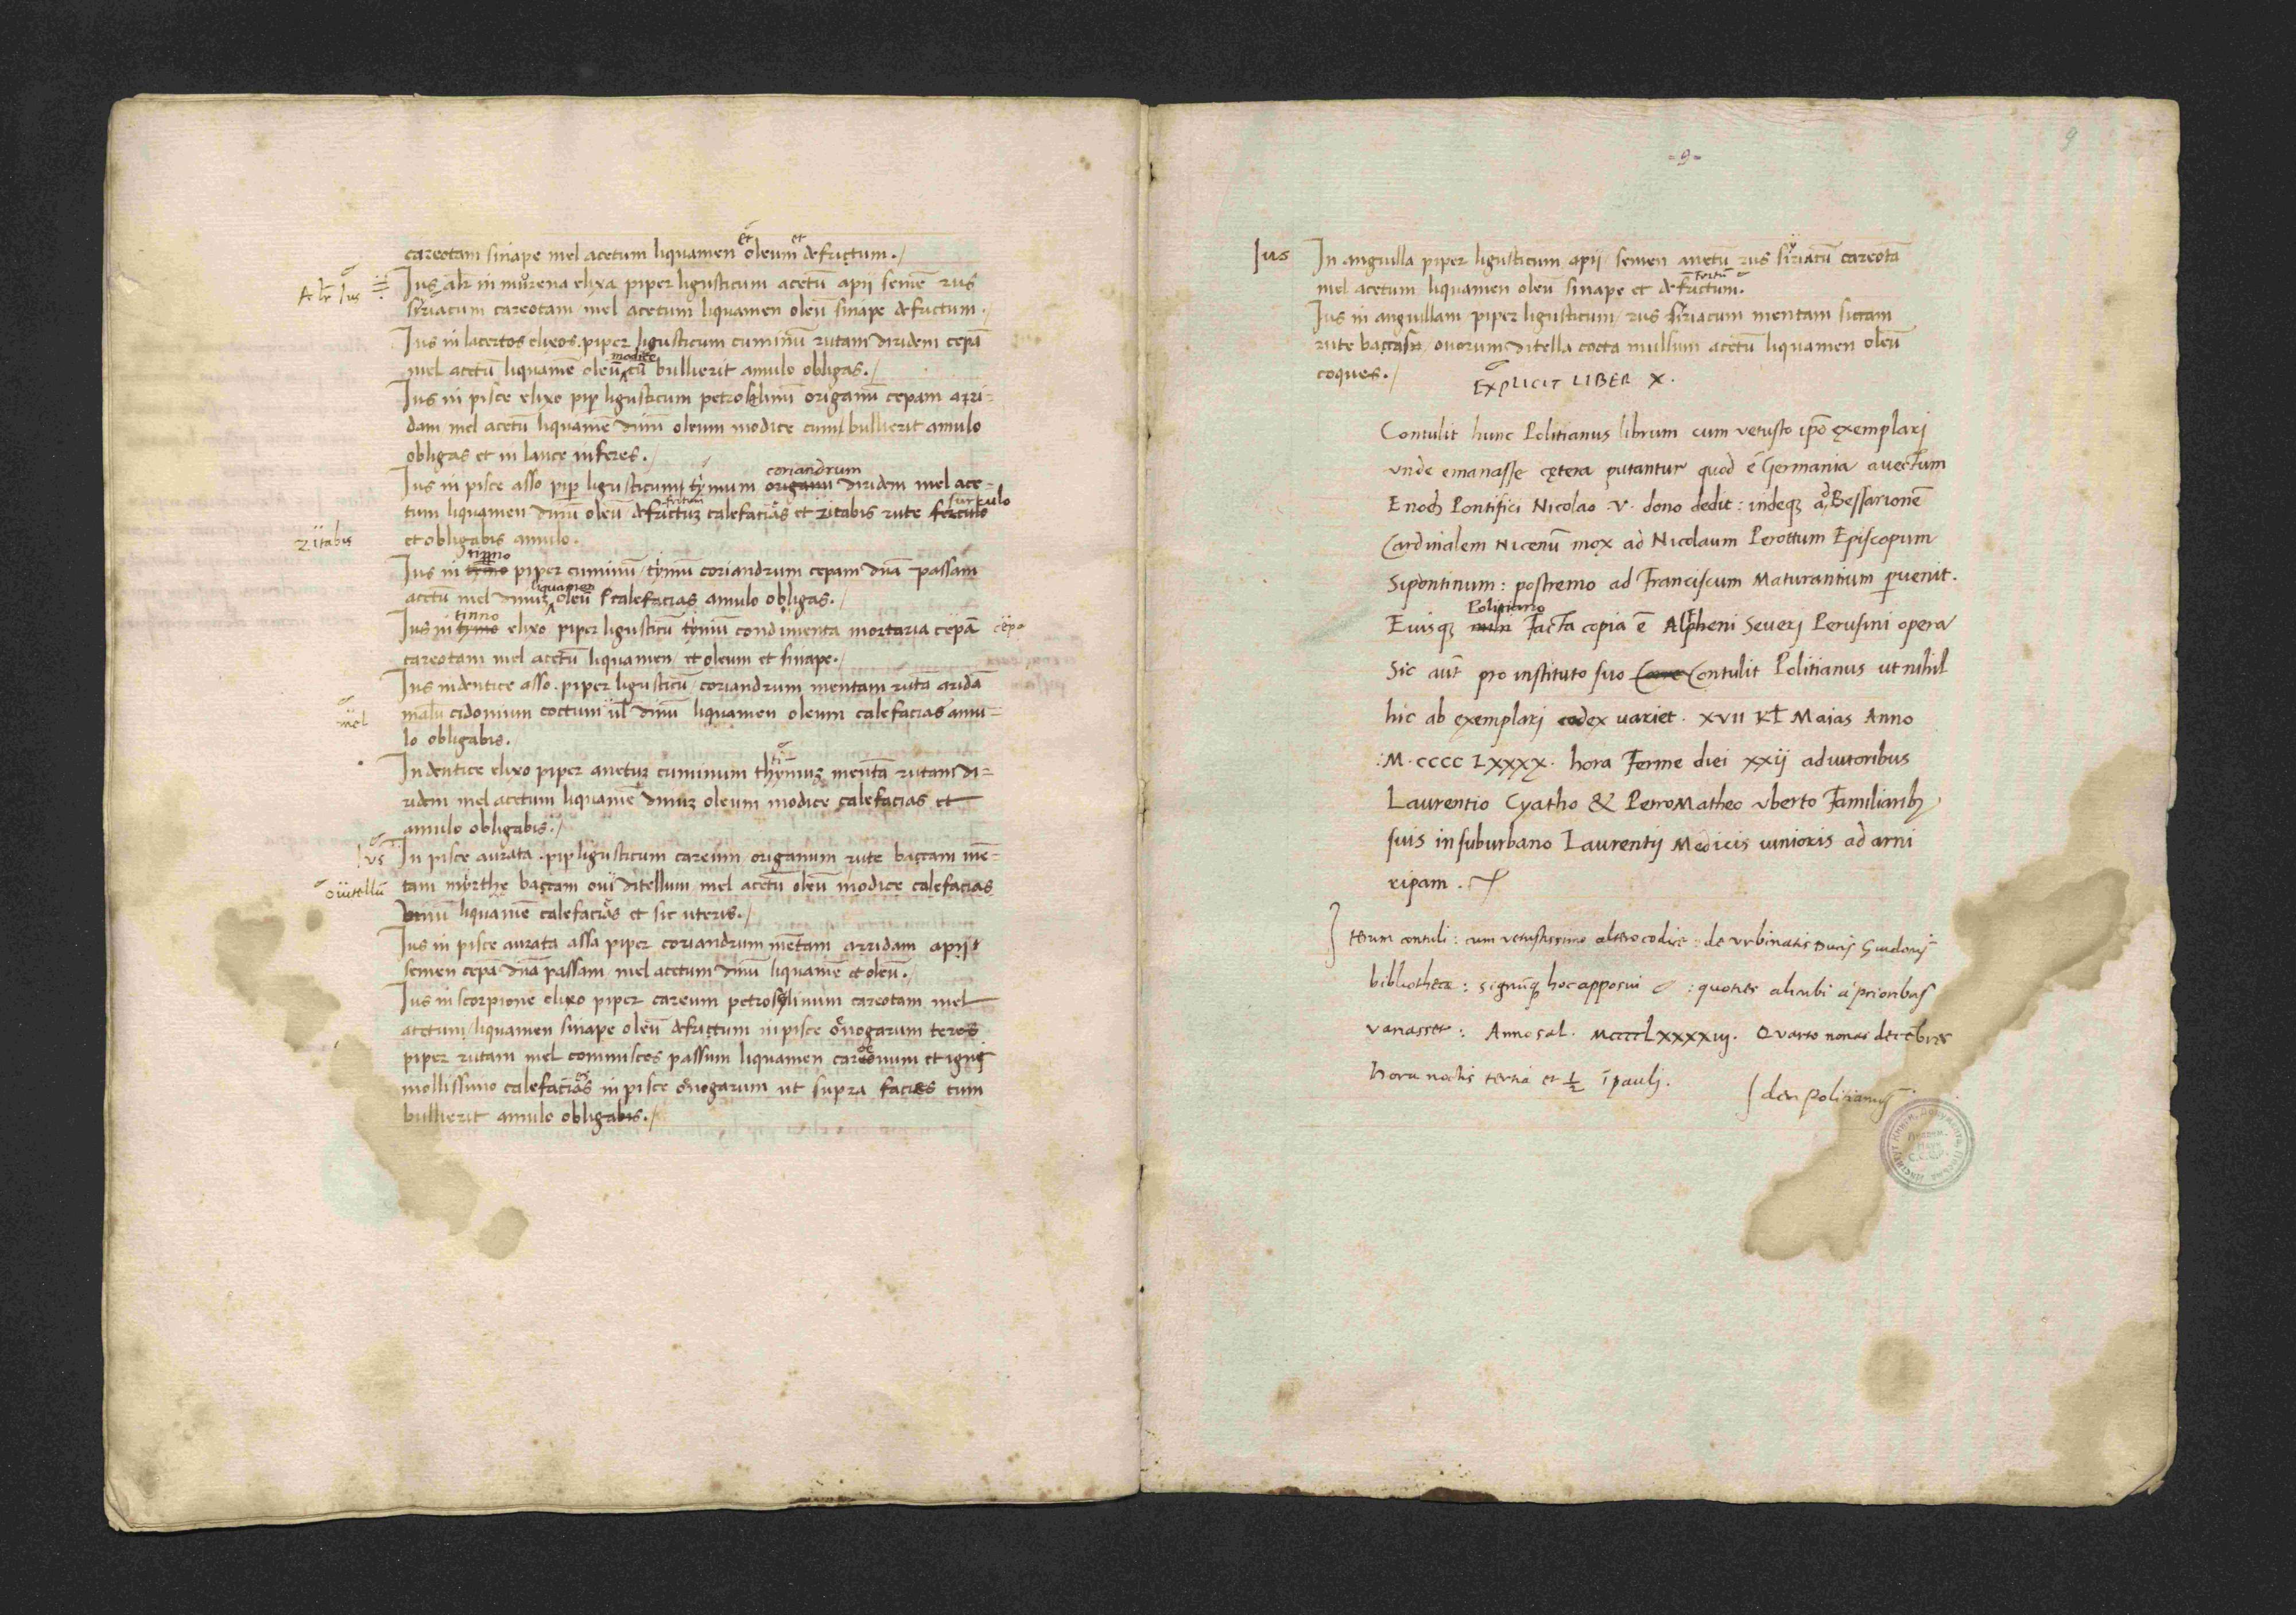 careotam sinape mel acetum liquamen et oleum et defrictum./
Alr̃ Ius
Ius alr̃ in murena elixa piper ligusticum acetū apii semē rus
siriacum careotam mel acetum liquamen oleū sinape defrictum./
Ius in lacertos elixos. piper ligusticum cuminū rutam viridem cepā
modice
mel acetū liquamē oleū cū bullierit amulo obligas./
Ius in pisce elixo pip̃ ligusticum petroselinū origanū cepam arri=
dam mel acetū liquamē vinū oleum modice cum bullierit amulo
obligas et in lance inferes./
coriandrum
Ius in pisce asso pip̃ ligusticum tymum origanū viridem mel ace=
surculo
tum liquamen vinū oleū defrictuʒ calefacias et zitabis rute ferculo
zitabis
et obligabis amulo.
tinno
Ius in tymo piper cuminū tymū coriandrum cepam uvā passam
liquamen
acetū mel vinuʒ oleū calefacias amulo obligas./
tinno
Ius in tymo elixo piper ligusticū tymū condimenta mortaria cepā
cepa
careotam mel acetū liquamen et oleum et sinape./
Ius in dentice asso. piper ligusticū coriandrum mentam rutā aridā
mel
malū cidonium coctum vl̃ vinū liquamen oleum calefacias amu=
lo obligabis.
In dentice elixo piper anetuʒ cuminum thymuʒ mentā rutam vi=
ridem mel acetum liquamē vinuʒ oleum modice calefacias et
amulo obligabis./
Ius
In pisce aurata. pip ligusticum careum origanum rute baccam mē=
ovitellū
tam myrthe baccam oui vitellum mel acetū oleū modice calefacias
vinū liquamē calefacias et sic uteris./
Ius in pisce aurata assa piper coriandrum mētam arridam apii
semen cepā uvā passam mel acetum vinū liquamē et oleū./
Ius in scorpione elixo piper careum petrosylinum careotam mel
acetum liquamen sinape oleū defrictum in pisce oenogarum teres
piper rutam mel commisces passum liquamen caroenum et igni
mollissimo calefacias in pisce oenogarum ut supra facies cum
bullierit amulo obligabis./
=9=
9
Ius
In anguilla piper ligusticum apii semen anetū rus siriacū careotā
mel acetum liquamen oleū sinape et defrictum.
Ius in anguillam piper ligusticum rus siriacum mentam siccam
rute baccas ovorum vitella cocta mulsum acetū liquamen oleū
coques./
EXPLICIT LIBER X.
Contulit hunc Politianus librum cum vetusto ipõ exemplari
unde emanasse cętera putantur quod ē Germania avectum
Enoch Pontifici Nicolao .V. dono dedit: indeqʒ ad Bessarionē
Cardinalem Nicenū mox ad Nicolaum Perottum Episcopum
Sipontinum: postremo ad Franciscum Maturantium p̱uenit.
Politiano
Eiusqʒ facta copia ē Alpheni Severi Perusini opera
Sic aūt pro instituto suo Contulit Politianus ut nihil
hic ab exemplari codex variet. XVII Kł Maias Anno
.M.CCCC LXXXX. hora Ferme diei xxij adiutoribus
Laurentio Cyatho & PetroMatheo Uberto Familiaribʒ
suis in suburbano Laurentij Medicis iunioris ad arni
ripam.
Iterum contuli: cum vetustissimo altero codice: de urbinatis Ducis Guidonis
bibliotheca: signūqʒ hoc apposui : quoties alicubi a' prioribus
variasset: Anno sal. MCCCCLXXXXIIJ. Quarto nonas decēbres
hora noctis tertia et ½ ī pauli.
Idem Politianus